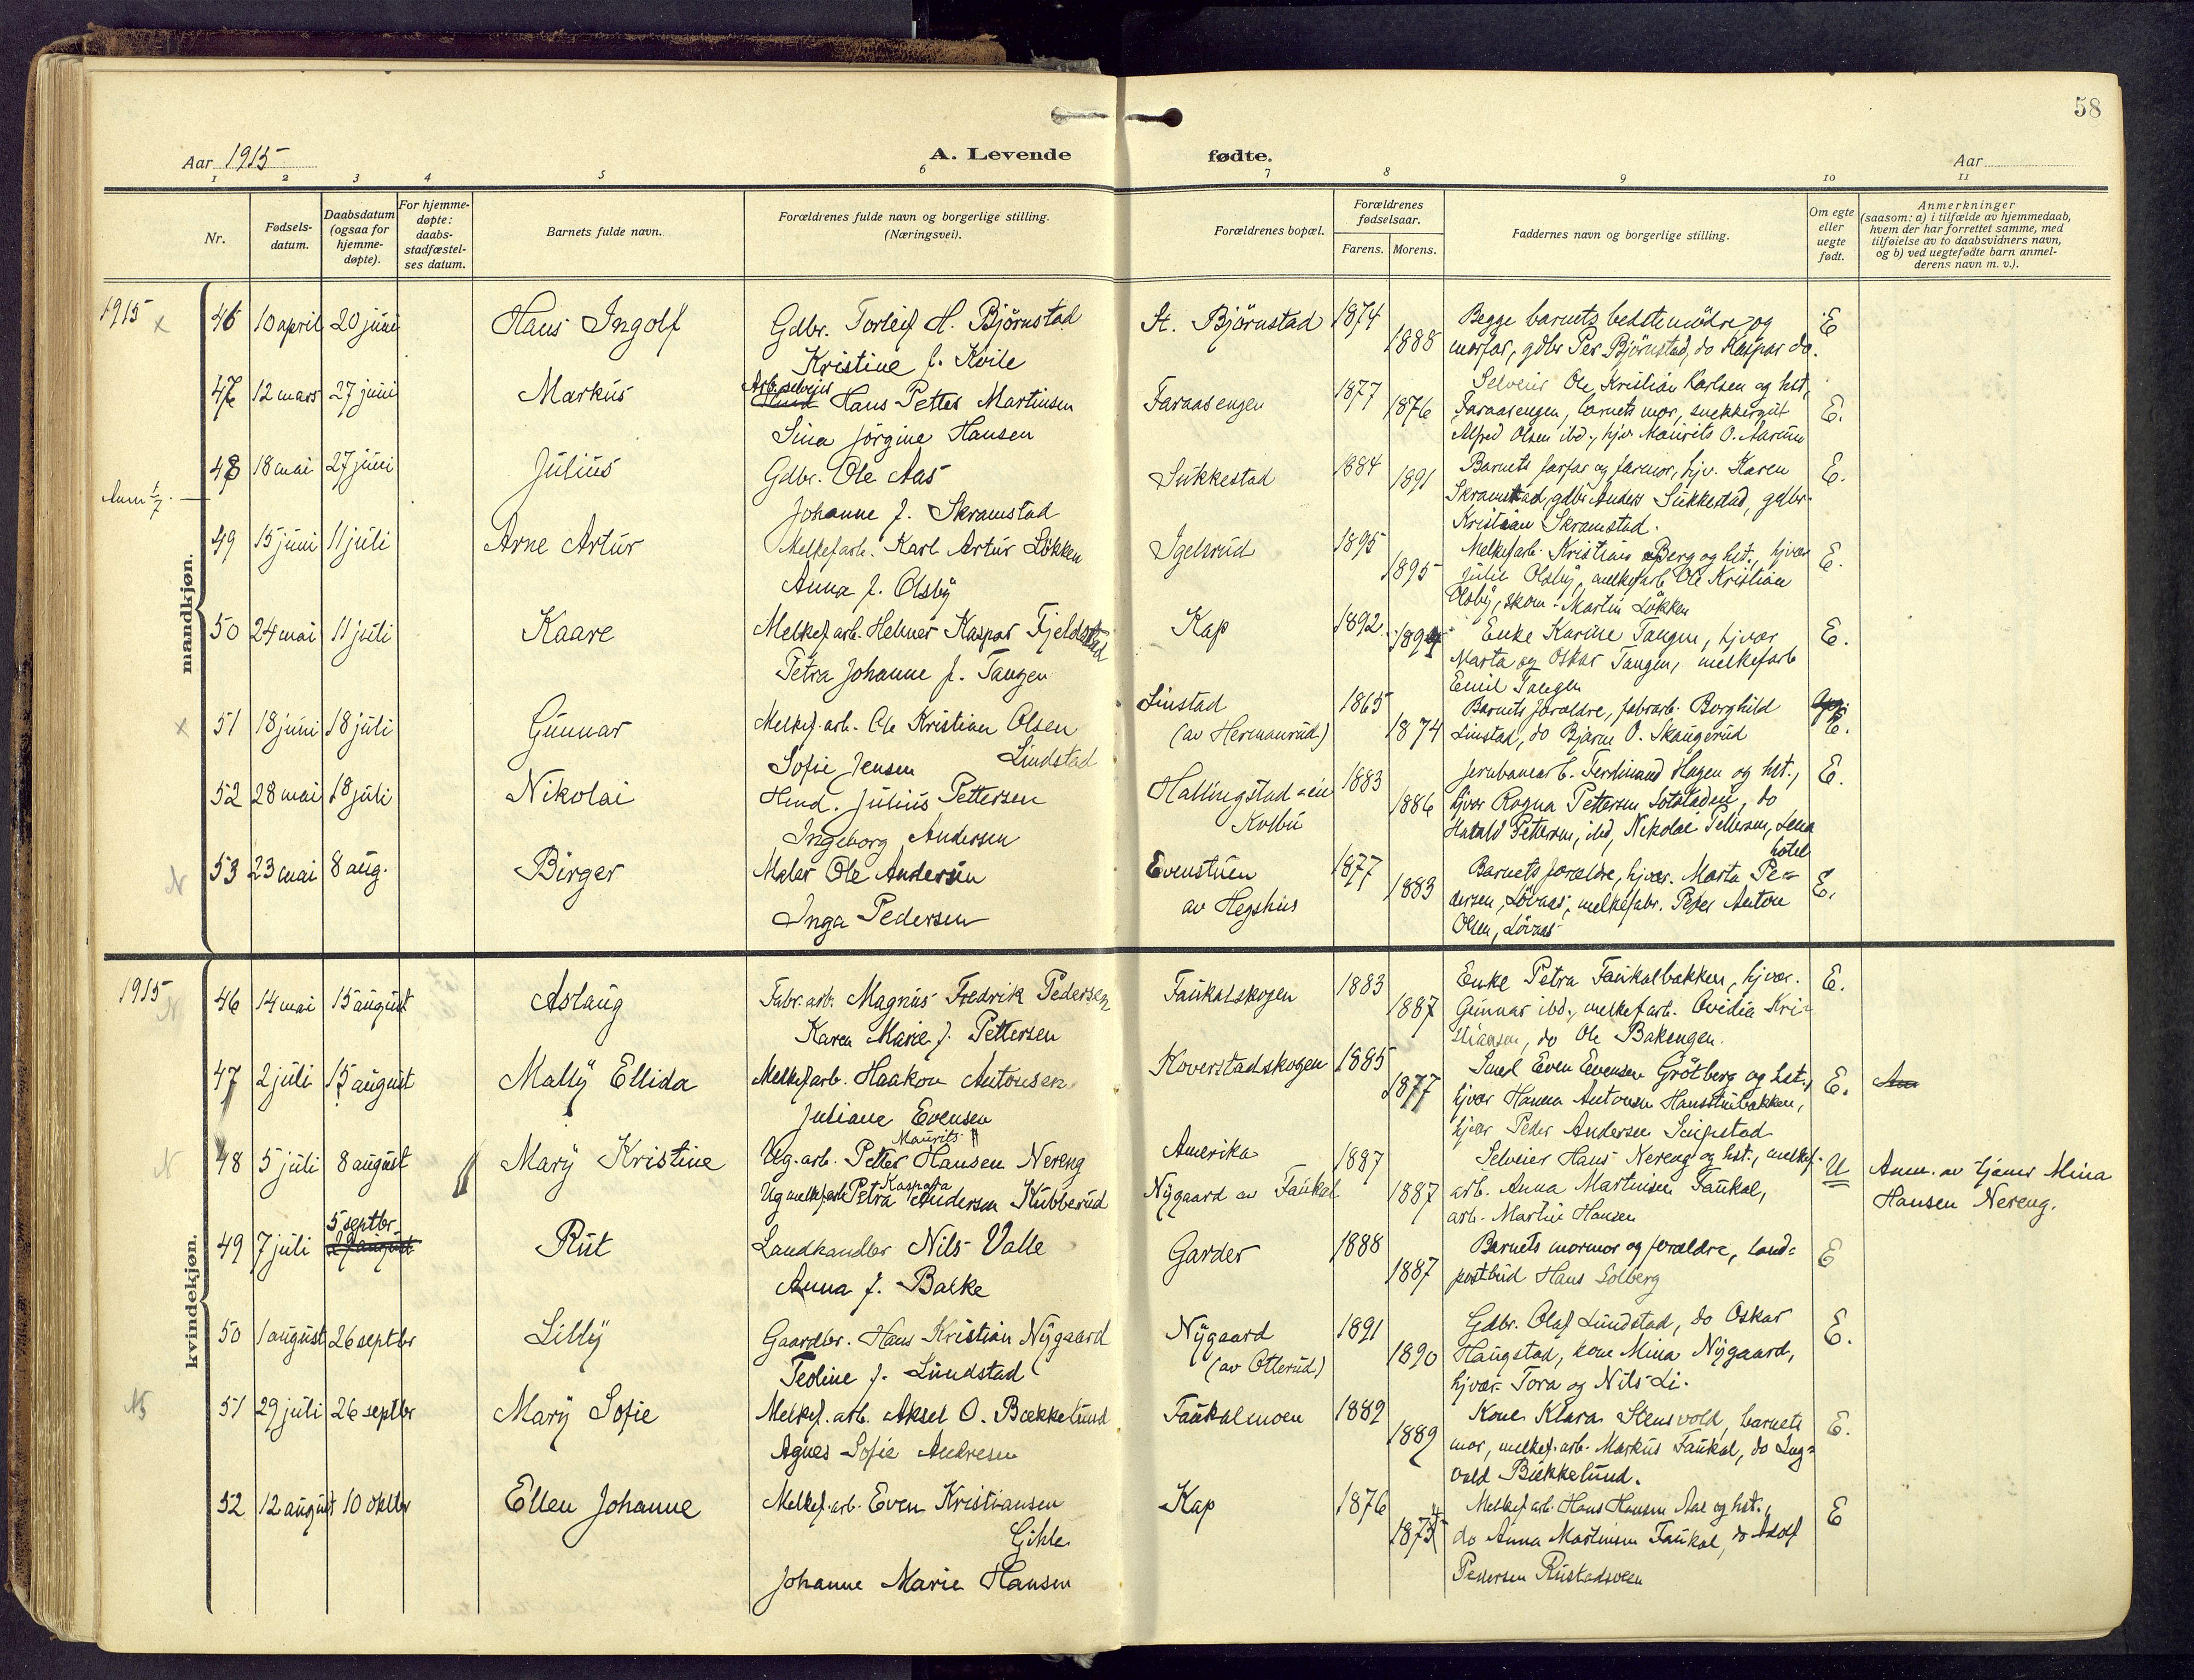 58
Aar 1915
A. Levende
fødte.
Aar
1 2 3 4 5 6 7 8 9 10 11
Nr.
Fødsels-
datum.
Daabsdatum
(ogsaa for
hjemme-
døpte).
For hjemme-
døpte:
daabs-
stadfæstel-
ses datum.
Barnets fulde navn.
Forældrenes fulde navn og borgerlige stilling.
(Næringsvei).
Forældrenes bopæl.
Forældrenes
fødselsaar.
Farens. Morens.
Faddernes navn og borgerlige stilling.
Om egte
eller
uegte
født.
Anmerkninger
(saasom: a) i tilfælde av hjemmedaab,
hvem der har forrettet samme, med
tilføielse av to daabsvidners navn,
og b) ved uegtefødte barn anmel-
derens navn m. v.).
mandkjøn.
1915 x
46 10 april 20 juni Hans Ingolf
Gdbr. Torleif H. Björnstad
Kristine f. Kvile
St. Björnstad 1874 1888
Begge barnets bedstemödre og
morfar, gdbr Per Björnstad, do Kaspar do.
E
47 12 mars 27 juni Markus
Arb. selveier
Hans Petter Martinsen
Sina Jörgine Hansen
Faraasengen 1877 1876
Selveier Ole Kristian Karlsen og hst,
Faraasengen, barnets mor, snekkergut
Alfred Olsen ibd., hjv. Maurits O. Aarum
E.
48 18 mai 27 juni Julius
Gdbr. Ole Aas
Johanne f. Skramstad
Sukkestad 1884 1891
Barnets farfar og farmor, hjv. Karen
Skramstad, gdbr Anders Sukkestad, gdbr.
Kristian Skramstad.
E.
49 15 juni 11 juli Arne Artur
Melkefarb. Karl Artur Løkken
Anna f. Olsby
Igelsrud 1895 1895
Melkefarb. Kristian Berg og hst., hjvær
Julie Olsby, melkefarb Ole Kristian
Olsby, skom. Martin Løkken
E.
50 24 mai 11 juli Kaare
Melkefarb. Helmer Kaspar Fjeldstad
Petra Johanne f. Tangen
Kap 1892 1894
Enke Karine Tangen, hjvær
Marta og Oskar Tangen, melkefarb
Emil Tangen
E.
x 51 18 juni 18 juli Gunnar
Melkef. arb. Ole Kristian Olsen
Lindstad
Sofie Jensen
Linstad
(av Hermanrud)
1865 1874
Barnets forældre, fabrarb. Borghild
Linstad, do Bjarne O. Skaugerud
E.
52 28 mai 18 juli Nikolai
Hmd. Julius Pettersen
Ingeborg Andersen
Hallingstad
Kolbu
1883 1886
Jernbanearb. Ferdinand Hagen og hst.,
hjvær Ragna Pettersen, do
Harald Pettersen, ibd, Nikolai Pettersen, Lena
hotel
E.
N 53 23 mai 8 aug. Birger
Maler Ole Andersen
Inga Pedersen
Evenstuen
av Hegshus
1877 1883
Barnets forældre, hjvær. Marta Pe-
dersen, Lövaas, melkefabr. Peder Anton
Olsen, Lövaas
E.
kvindekjøn.
1915
N 46 14 mai 15 august Aslaug
Fabr. arb. Magnus Fredrik Pedersen
Karen Marie f. Pettersen
Faukalskogen 1883 1887
Enke Petra Faukalbakken, hjvær.
Gunnar ibd., melkefarb. Ovidia Kri-
stiansen, do Ole Bakengen.
E.
47 2 juli 15 august Mally Ellida
Melkefarb. Haakon Antonsen
Juliane Evensen
Koverstadskogen 1885 1877
Smed Even Evensen Grötberg og hst.,
hjvær Hanna Antonsen Hansstubakken,
hjvær Peder Andersen
E.
N 48 5 juli 8 august Mary Kristine
Maurits
Ug. arb. Petter Hansen Nereng
Kaspara
Ug melkefarb Petra Andersen Kubberud
Amerika
Nygaard av Faukal
1887 1887
Selveier Hans Nereng og hst., melkef-
arb. Anna Martinsen Faukal,
arb. Martin Hansen
U
Anm. av tjener Mina
Hansen Nereng.
49 7 juli 5 septbr Rut
Landhandler Nils Valle
Anna f. Balke
Garder 1888 1887
Barnets mormor og forældre, land-
postbud Hans Solberg
E
50 1 august 26 septbr Lilly
Gaardbr. Hans Kristian Nygaard
Teoline f. Lundstad
Nygaard
(av Otterud)
1891 1890
Gdbr. Olaf Lundstad, do Oskar
Haugstad, kone Mina Nygaard,
hjvær Tora og Nils Li.
E.
N 51 29 juli 26 septbr Mary Sofie
Melkef. arb. Aksel O. Bækkelund
Agnes Sofie Andresen
Faukalmoen 1889 1889
Kone Klara Stensvold, barnets
mor, melkef. arb. Markus Faukal, do Ing-
vald Bækkelund.
E.
52 12 august 10 oktbr Ellen Johanne
Melkef. arb. Even Kristiansen
Gihle
Johanne Marie Hansen
Kap 1876
Melkef. arb. Hans Hansen Aas og hst.,
do Anna Martinsen Faukal, do Adolf
Pettersen
E